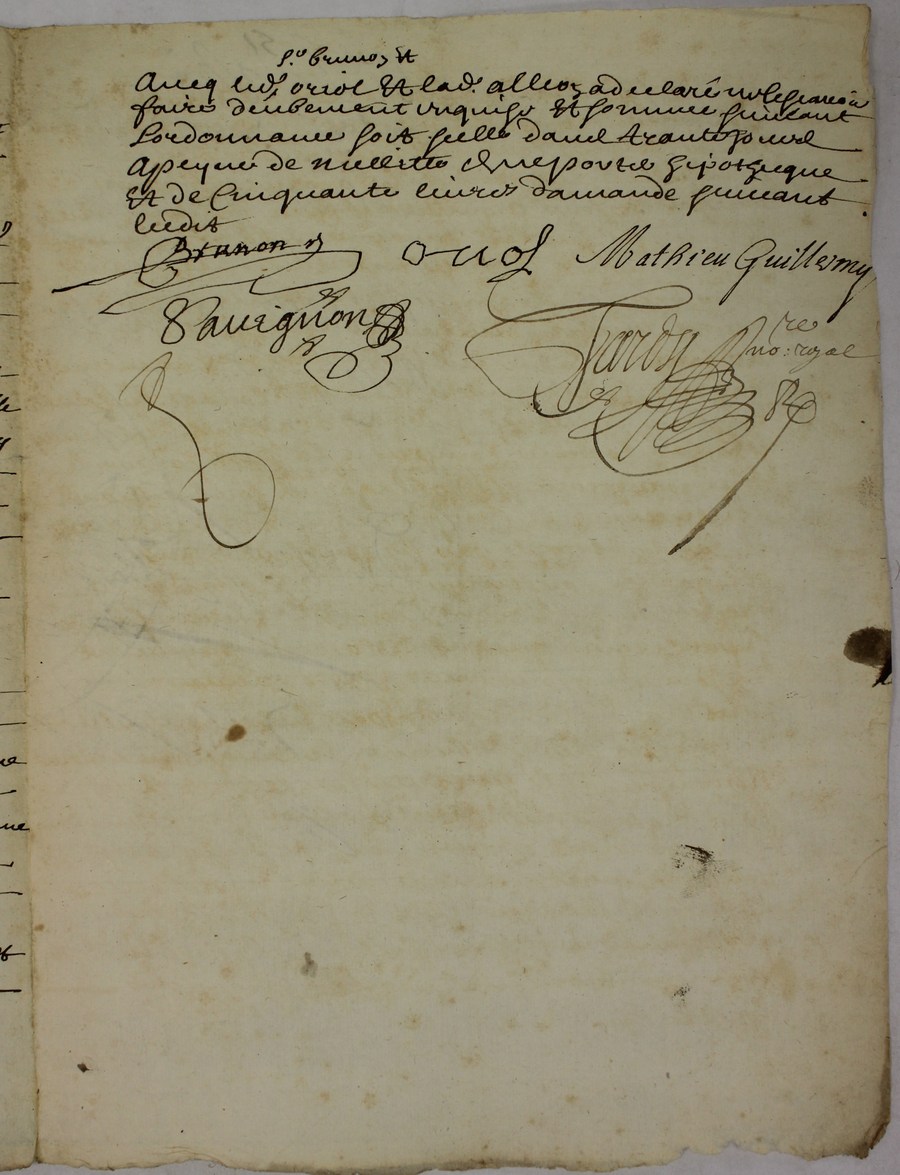 Sr brunon Et
Avecq led. oriol Et lad. alleon a declaré ne le scavoir
faire deubement enquise Et sommee suivant
Lordonnance soit scelle dans trante jours
apeyne de nullitte & ne porter hipotheque
Et de Cinquante livres damande suivant
ledit
Brunon oriol Mathieu Guillermy
Sauvignon Tardy no:re royal